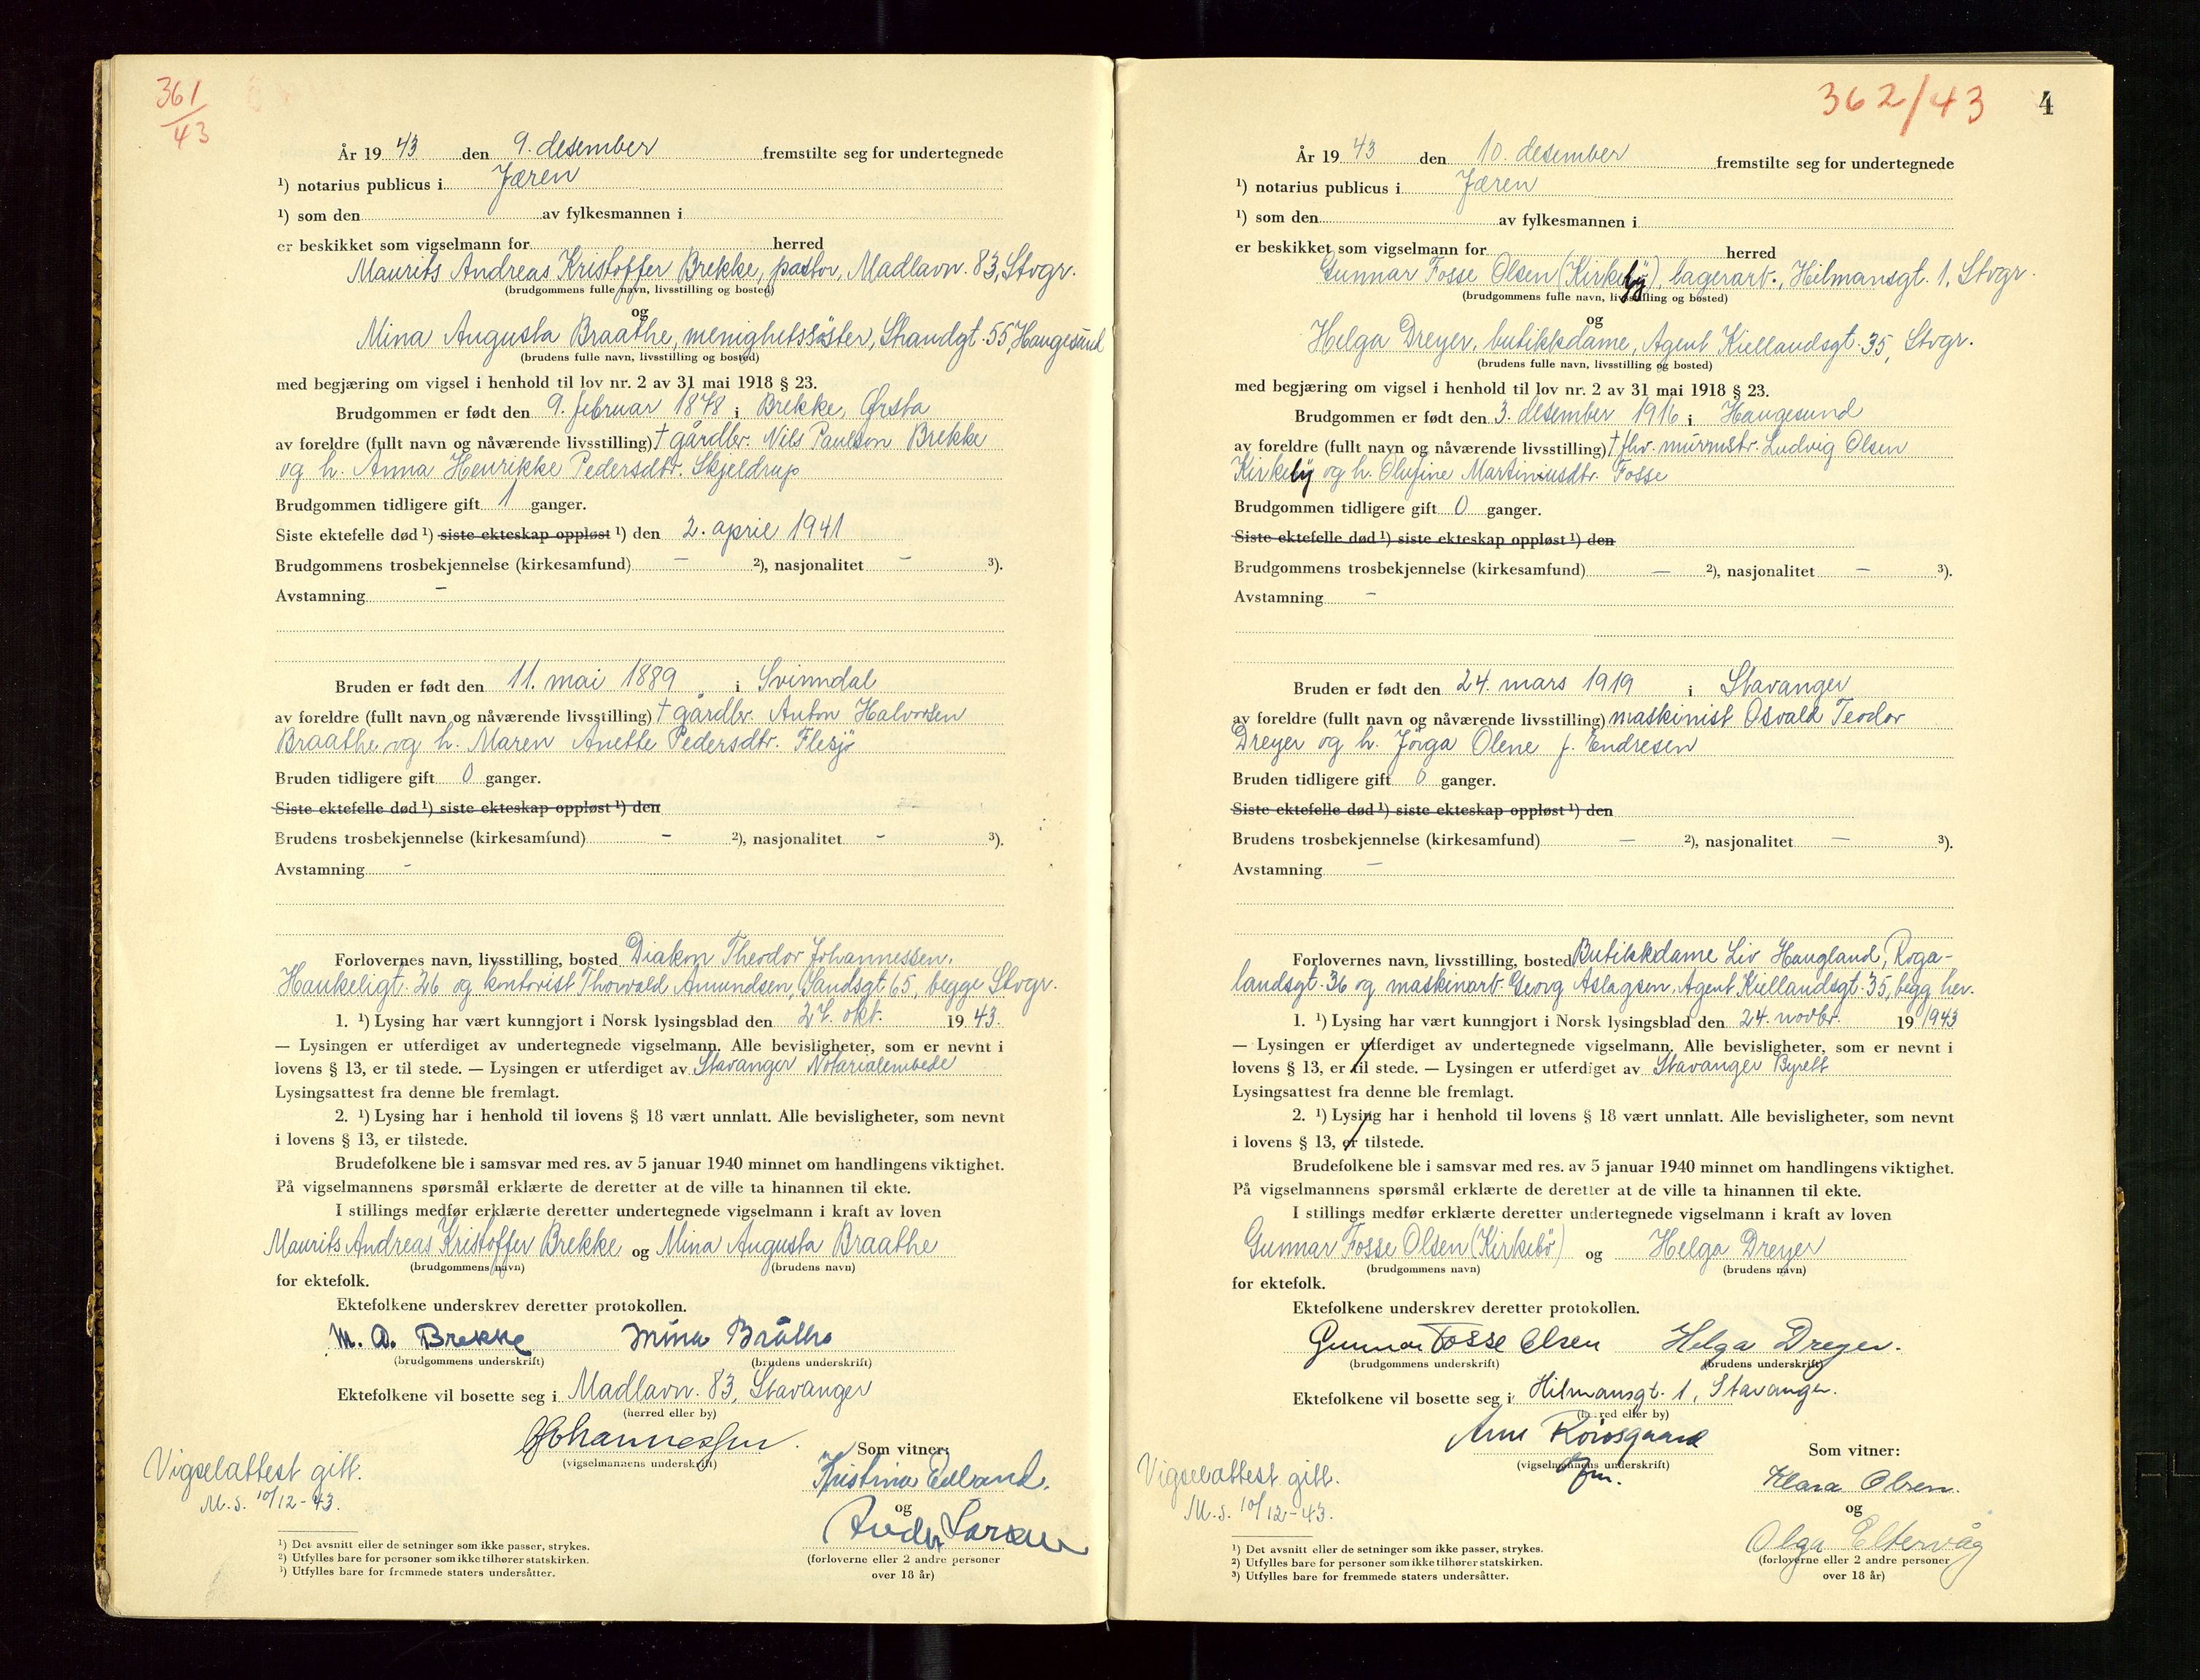 361
43
År 19 43 den 9. desember fremstilte seg for undertegnede
¹) notarius publicus i Jæren
¹) som den av fylkesmannen i
er beskikket som vigselmann for herred
Maurits Andreas Kristoffer Brekke, pastor, Madlavn. 83, Stvgr.
(brudgommens fulle navn, livsstilling og bosted)
og
Mina Augusta Braathe, menighetssøster, Strandgt. 55, Haugesund
(brudens fulle navn, livsstilling og bosted)
med begjæring om vigsel i henhold til lov nr. 2 av 31 mai 1918 § 23.
Brudgommen er født den 9. februar 1878 i Brekke, Ørsta
av foreldre (fullt navn og nåværende livsstilling) † gårdbr. Nils Paulson Brekke
og h. Anna Henrikke Pedersdtr. Skjeldrup
Brudgommen tidligere gift 1 ganger.
Siste ektefelle død ¹) siste ekteskap oppløst ¹) den 2. april 1941
Brudgommens trosbekjennelse (kirkesamfund) - ²), nasjonalitet - ³).
Avstamning -
Bruden er født den 11. mai 1889 i Svinndal
av foreldre (fullt navn og nåværende livsstilling) † gårdbr. Anton Halvorsen
Braathe og h. Maren Anette Pedersdtr. Flesjø
Bruden tidligere gift 0 ganger.
Siste ektefelle død ¹) siste ekteskap oppløst ¹) den
Brudens trosbekjennelse (kirkesamfund) - ²), nasjonalitet - ³).
Avstamning -
Forlovernes navn, livsstilling, bosted Diakon Theodor Johannessen,
Haukeligt. 26 og kontorist Thorvald Amundsen, Sandsgt 65, begge Stvgr.
1. ¹) Lysing har vært kunngjort i Norsk lysingsblad den 27. okt. 19 43.
— Lysingen er utferdiget av undertegnede vigselmann. Alle bevisligheter, som er nevnt i
lovens § 13, er til stede. — Lysingen er utferdiget av Stavanger Notarialembede
Lysingsattest fra denne ble fremlagt.
2. ¹) Lysing har i henhold til lovens § 18 vært unnlatt. Alle bevisligheter, som nevnt
i lovens § 13, er tilstede.
Brudefolkene ble i samsvar med res. av 5 januar 1940 minnet om handlingens viktighet.
På vigselmannens spørsmål erklærte de deretter at de ville ta hinannen til ekte.
I stillings medfør erklærte deretter undertegnede vigselmann i kraft av loven
Maurits Andreas Kristoffer Brekke og Mina Augusta Braathe
(brudgommens navn) (brudens navn)
for ektefolk.
Ektefolkene underskrev deretter protokollen.
M. A. Brekke Mina Bråthe
(brudgommens underskrift) (brudens underskrift)
Ektefolkene vil bosette seg i Madlavn. 83, Stavanger
(herred eller by)
Johannessen.
(vigselmannens underskrift)
Som vitner:
Kristina Edland.
og
Larsen
(forloverne eller 2 andre personer
over 18 år)
Vigselattest gitt.
M.S. 10/12-43.
¹) Det avsnitt eller de setninger som ikke passer, strykes.
²) Utfylles bare for personer som ikke tilhører statskirken.
³) Utfylles bare for fremmede staters undersåtter.
362/43 4
År 19 43 den 10. desember fremstilte seg for undertegnede
¹) notarius publicus i Jæren
¹) som den av fylkesmannen i
er beskikket som vigselmann for herred
Gunnar Fosse Olsen (Kirkeby), lagerarb., Hilmansgt. 1, Stvgr.
(brudgommens fulle navn, livsstilling og bosted)
og
Helga Dreyer, butikkdame, Agent Kiellandsgt. 35, Stvgr.
(brudens fulle navn, livsstilling og bosted)
med begjæring om vigsel i henhold til lov nr. 2 av 31 mai 1918 § 23.
Brudgommen er født den 3. desember 1916 i Haugesund
av foreldre (fullt navn og nåværende livsstilling) † fhv. murmstr. Ludvig Olsen
Kirkeby og h. Olufine Martiniusdtr. Fosse
Brudgommen tidligere gift 0 ganger.
Siste ektefelle død ¹) siste ekteskap oppløst ¹) den
Brudgommens trosbekjennelse (kirkesamfund) — ²), nasjonalitet — ³).
Avstamning -
Bruden er født den 24. mars 1919 i Stavanger
av foreldre (fullt navn og nåværende livsstilling) maskinist Osvald Teodor
Dreyer og h. Jørga Olene f. Endresen
Bruden tidligere gift 0 ganger.
Siste ektefelle død ¹) siste ekteskap oppløst ¹) den
Brudens trosbekjennelse (kirkesamfund) — ²), nasjonalitet — ³).
Avstamning —
Forlovernes navn, livsstilling, bosted Butikkdame Liv Haugland, Roga-
landsgt. 36 og maskinarb. Georg Aslagsen, Agent Kiellandsgt. 35, begg her.
1. ¹) Lysing har vært kunngjort i Norsk lysingsblad den 24. novbr. 19 1943
— Lysingen er utferdiget av undertegnede vigselmann. Alle bevisligheter, som er nevnt i
lovens § 13, er til stede. — Lysingen er utferdiget av Stavanger Byrett
Lysingsattest fra denne ble fremlagt.
2. ¹) Lysing har i henhold til lovens § 18 vært unnlatt. Alle bevisligheter, som nevnt
i lovens § 13, er tilstede.
Brudefolkene ble i samsvar med res. av 5 januar 1940 minnet om handlingens viktighet.
På vigselmannens spørsmål erklærte de deretter at de ville ta hinannen til ekte.
I stillings medfør erklærte deretter undertegnede vigselmann i kraft av loven
Gunnar Fosse Olsen (Kirkebø) og Helga Dreyer
(brudgommens navn) (brudens navn)
for ektefolk.
Ektefolkene underskrev deretter protokollen.
Gunnar Fosse Olsen Helga Dreyer.
(brudgommens underskrift) (brudens underskrift)
Ektefolkene vil bosette seg i Hilmansgt. 1, Stavanger.
(herred eller by)
(vigselmannens underskrift)
Som vitner:
Klara Olsen.
og
Olga Eltervåg
(forloverne eller 2 andre personer
over 18 år)
Vigselattest gitt.
M.S. 10/12-43.
¹) Det avsnitt eller de setninger som ikke passer, strykes.
²) Utfylles bare for personer som ikke tilhører statskirken.
³) Utfylles bare for fremmede staters undersåtter.